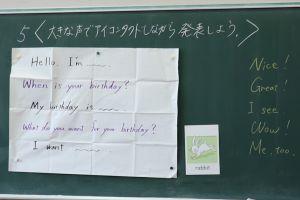 5 <大きな声でアイコンタクトしながら発表しよう。
Hello. I'm ~~~.
When is your birthday?
My birthday is ~~~.
What do you want for your birthday?
I want ~~~.
rabbit
Nice!
Great!
I see
Wow!
Me, too.